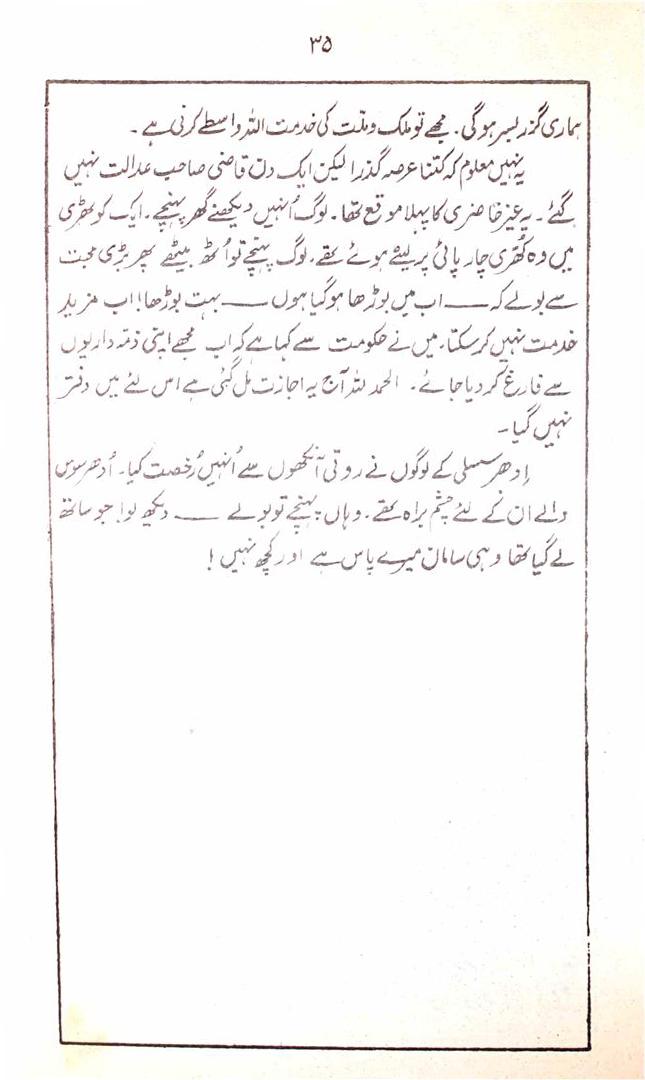 ۳۵
ہماری گزر بسر ہوگی۔ مجھے تو ملک و ملت کی خدمت اللہ واسطے کرنی ہے۔
یہ نہیں معلوم کہ کتنا عرصہ گذرا لیکن ایک دن قاضی صاحب عدالت نہیں
گئے۔ یہ غیر حاضری کا پہلا موقع تھا۔ لوگ اُنہیں دیکھنے گھر پہنچے۔ ایک کوٹھری
میں وہ کھّری چارپائی پر لیٹے ہوئے تھے۔ لوگ پہنچے تو اُٹھ بیٹھے پھر بڑی محبت
سے بولے کہ —— اب میں بوڑھا ہو گیا ہوں —— بہت بوڑھا! اب مزید
خدمت نہیں کر سکتا۔ میں نے حکومت سے کہا ہے کہ اب مجھے اپنی ذمہ داریوں
سے فارغ کر دیا جائے۔ الحمد للہ آج یہ اجازت مل گئی ہے اس لئے میں دفتر
نہیں گیا۔
اِدھر سسلی کے لوگوں نے روتی آنکھوں سے اُنہیں رُخصت کیا۔ اُدھر سوس
والے ان کے لئے چشم براہ تھے۔ وہاں پہنچے تو بولے —— دیکھ لو! جو ساتھ
لے گیا تھا وہی سامان میرے پاس ہے اور کچھ نہیں!